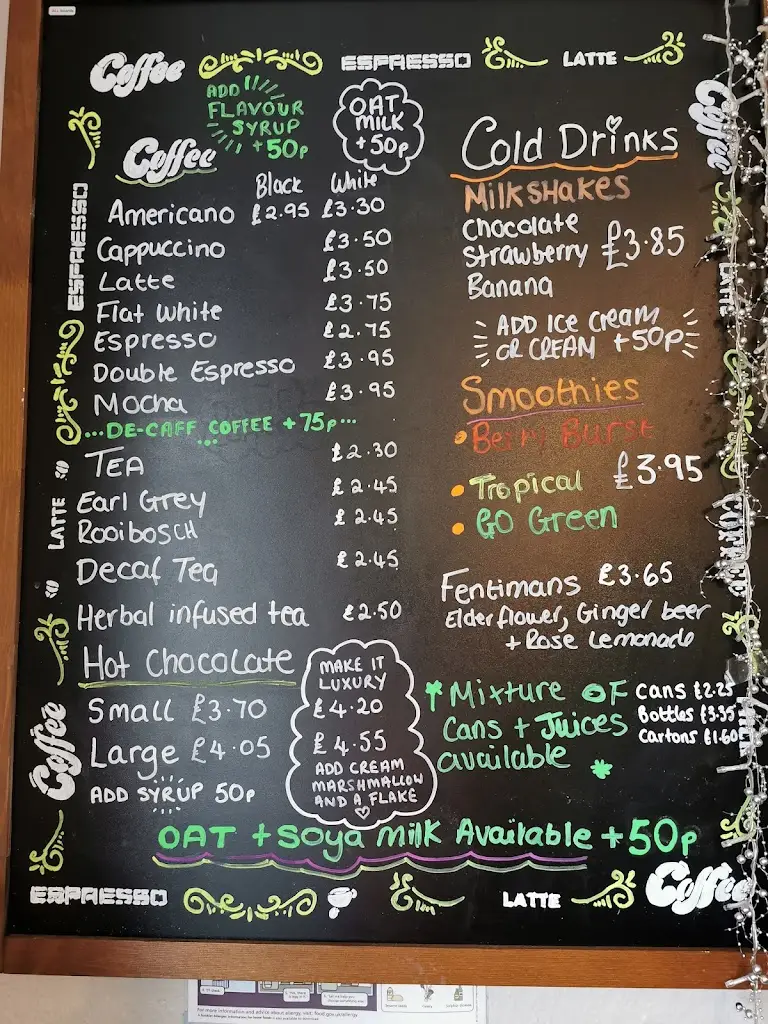 Coffee
ESPRESSO
LATTE
ADD
FLAVOUR
SYRUP
+50p
OAT
MILK
+50p
Coffee
Black White
Americano £2.95 £3.30
Cappuccino £3.50
Latte £3.50
Flat White £3.75
Espresso £2.75
Double Espresso £3.95
Mocha £3.95
...DE-CAFF COFFEE +75p...
TEA £2.30
Earl Grey £2.45
Rooibosch £2.45
Decaf Tea £2.45
Herbal infused tea £2.50
Hot Chocolate
Small £3.70
Large £4.05
ADD SYRUP 50p
MAKE IT
LUXURY
£4.20
£4.55
ADD CREAM
MARSHMALLOW
AND A FLAKE
Cold Drinks
Milkshakes
Chocolate
Strawberry £3.85
Banana
ADD ICE CREAM
OR CREAM +50p
Smoothies
• Berry Burst
• Tropical £3.95
• GO Green
Fentimans £3.65
Elderflower, Ginger beer
+ Rose Lemonade
Mixture OF
Cans + Juices
available
Cans £2.25
Bottles £3.35
Cartons £1.60
OAT + Soya Milk Available +50p
ESPRESSO
LATTE
Coffee
ESPRESSO
LATTE
Coffee
Coffee
LATTE
COFFEE
For more information and advice about allergy, visit: food.gov.uk/allergy